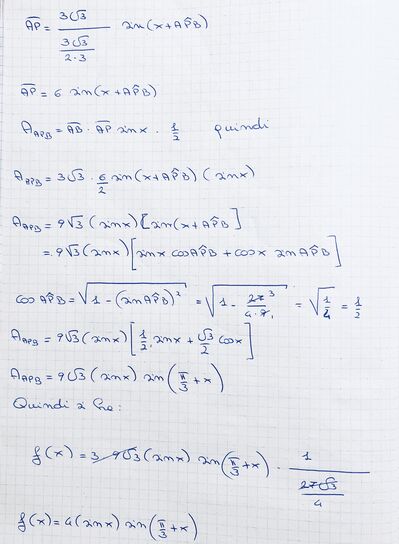 AP = 3√3 / (3√3 / 2·3) sin(x + AP̂B)
AP = 6 sin(x + AP̂B)
A_APB = AB · AP sinx · 1/2 quindi
A_APB = 3√3 · 6/2 sin(x + AP̂B) (sinx)
A_APB = 9√3 (sinx) [sin(x + AP̂B]
= 9√3 (sinx) [sinx cosAP̂B + cosx sinAP̂B]
cosAP̂B = √(1 - (sinAP̂B)²) = √(1 - 27 3 / 4·9 1) = √(1/4) = 1/2
A_APB = 9√3 (sinx) [1/2 sinx + √3/2 cosx]
A_APB = 9√3 (sinx) sin(π/3 + x)
Quindi si ha:
f(x) = 3 · 9√3 (sinx) sin(π/3 + x) · 1 / (27√3 / 4)
f(x) = 4 (sinx) sin(π/3 + x)